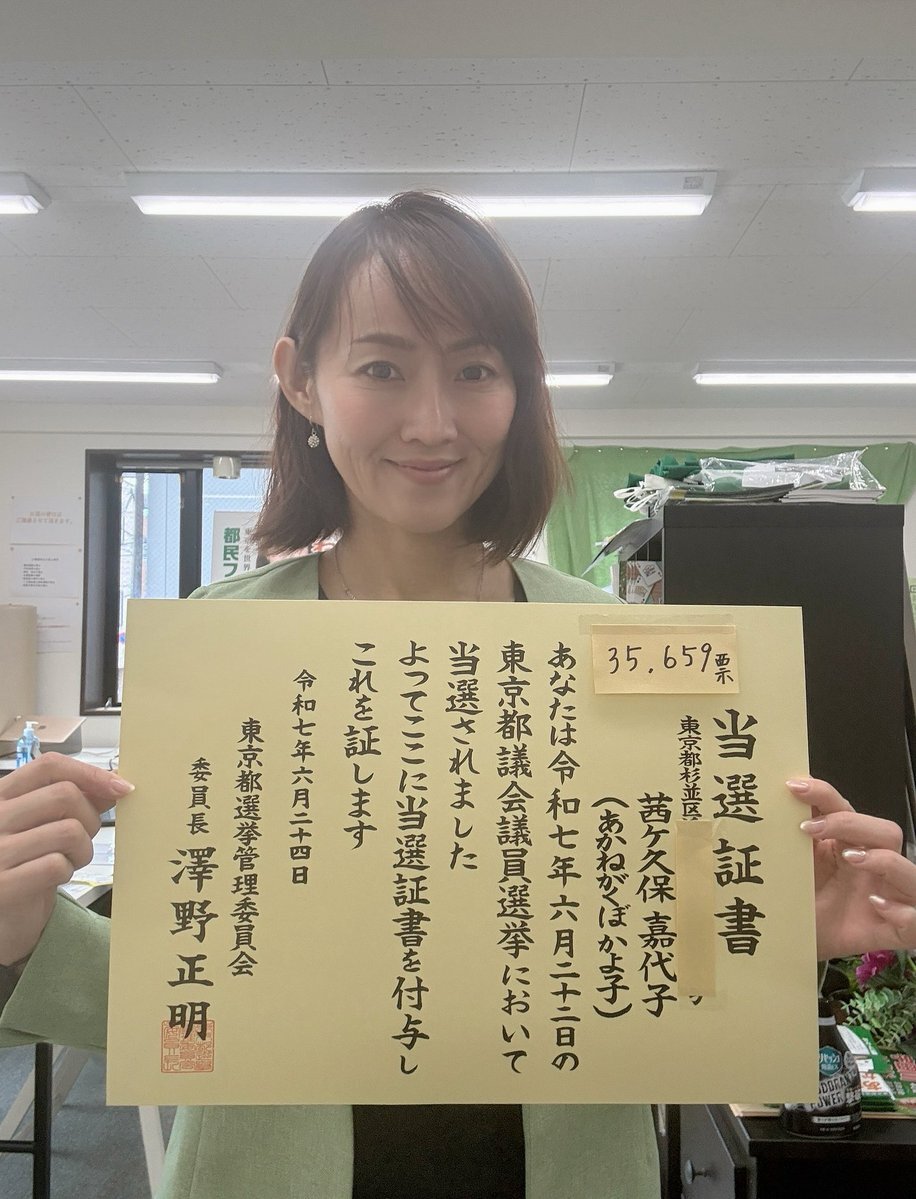 当選証書
東京都杉並区
茜ケ久保 嘉代子
(あかねがくぼかよ子)
35,659票
あなたは令和七年六月二十二日の
東京都議会議員選挙において
当選されました
よってここに当選証書を付与し
これを証します
令和七年六月二十四日
東京都選挙管理委員会
委員長 澤野正明
都民フ